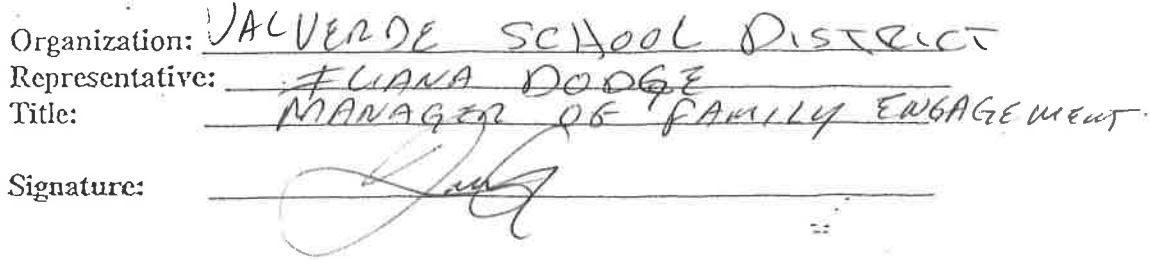 Organization: VALVERDE SCHOOL DISTRICT
Representative: ILIANA DODGE
Title: MANAGER OF FAMILY ENGAGEMENT
Signature: